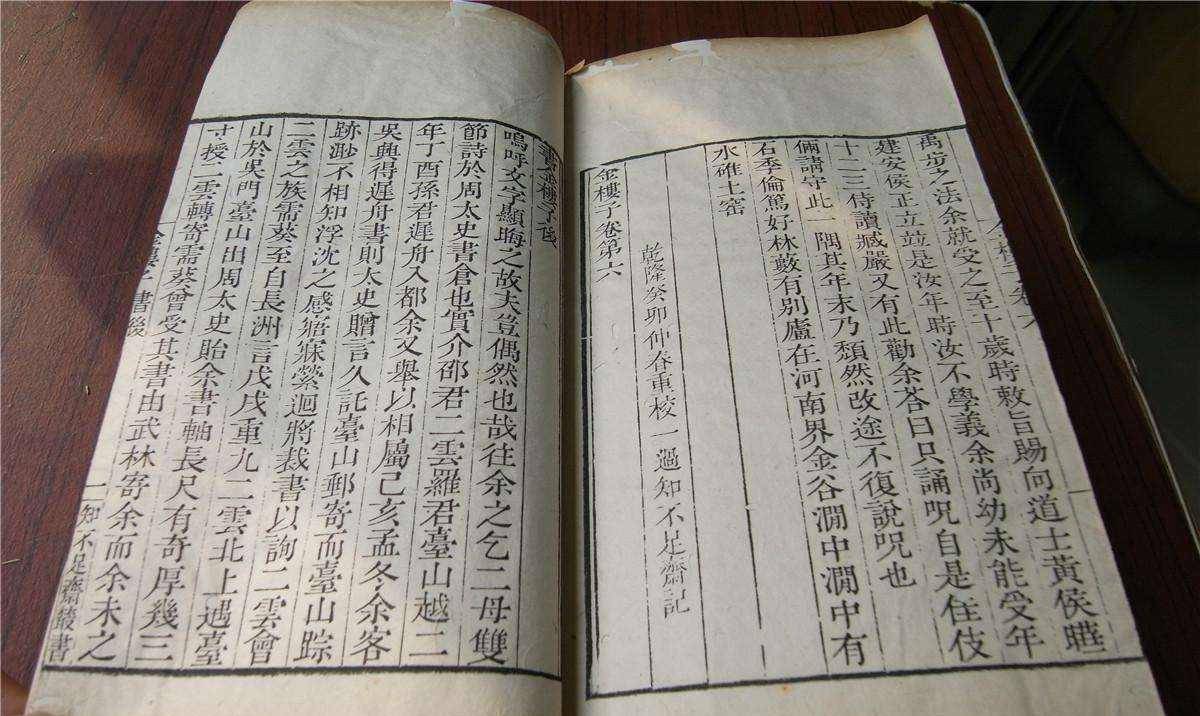 禹步之法余就受之至十歲時敕旨賜向道士黃侯曄
建安侯正立並是汝年時汝不學義余尚幼未能受年
十二三侍讀臧嚴又有此勸余荅曰只誦呪自是佳伎
倆請守此一隅其年末乃頹然改途不復說呪也
石季倫篤好林藪有别廬在河南界金谷澗中澗中有
水碓土窑
乾隆癸卯仲春重校一過知不足齋記
金樓子卷第六
書金樓子後
嗚呼文字顯晦之故夫豈偶然也哉往余之乞二母雙
節詩於周太史書倉也實介邵君二雲羅君臺山越二
年丁酉孫君遲舟入都余又舉以相屬己亥孟冬余客
吳興得遲舟書則太史贈言久託臺山郵寄而臺山踪
跡渺不相知浮沈之感寤寐縈迴將裁書以詢二雲會
二雲之族需葵至自長洲言戊戌重九二雲北上遇臺
山於吳門臺山出周太史貽余書軸長尺有奇厚幾三
寸授二雲轉寄需葵曾受其書由武林寄余而余未之
金樓子 書後
一知不足齋叢書